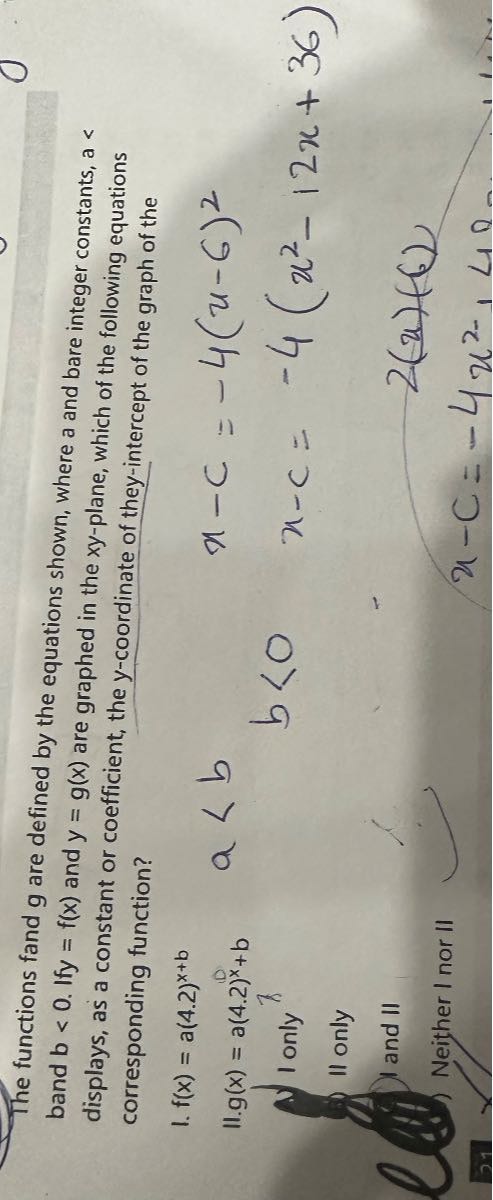 The functions fand g are defined by the equations shown, where a and bare integer constants, a <
band b < 0. Ify = f(x) and y = g(x) are graphed in the xy-plane, which of the following equations
displays, as a constant or coefficient, the y-coordinate of they-intercept of the graph of the
corresponding function?
I. f(x) = a(4.2)ˣ⁺ᵇ
II.g(x) = a(4.2)ˣ+b
I only
II only
I and II
Neither I nor II
a < b
b < 0
x - C = -4(x-6)²
x - C = -4(x² - 12x + 36)
2(x)(6)
x - C = -4x² + 48
21